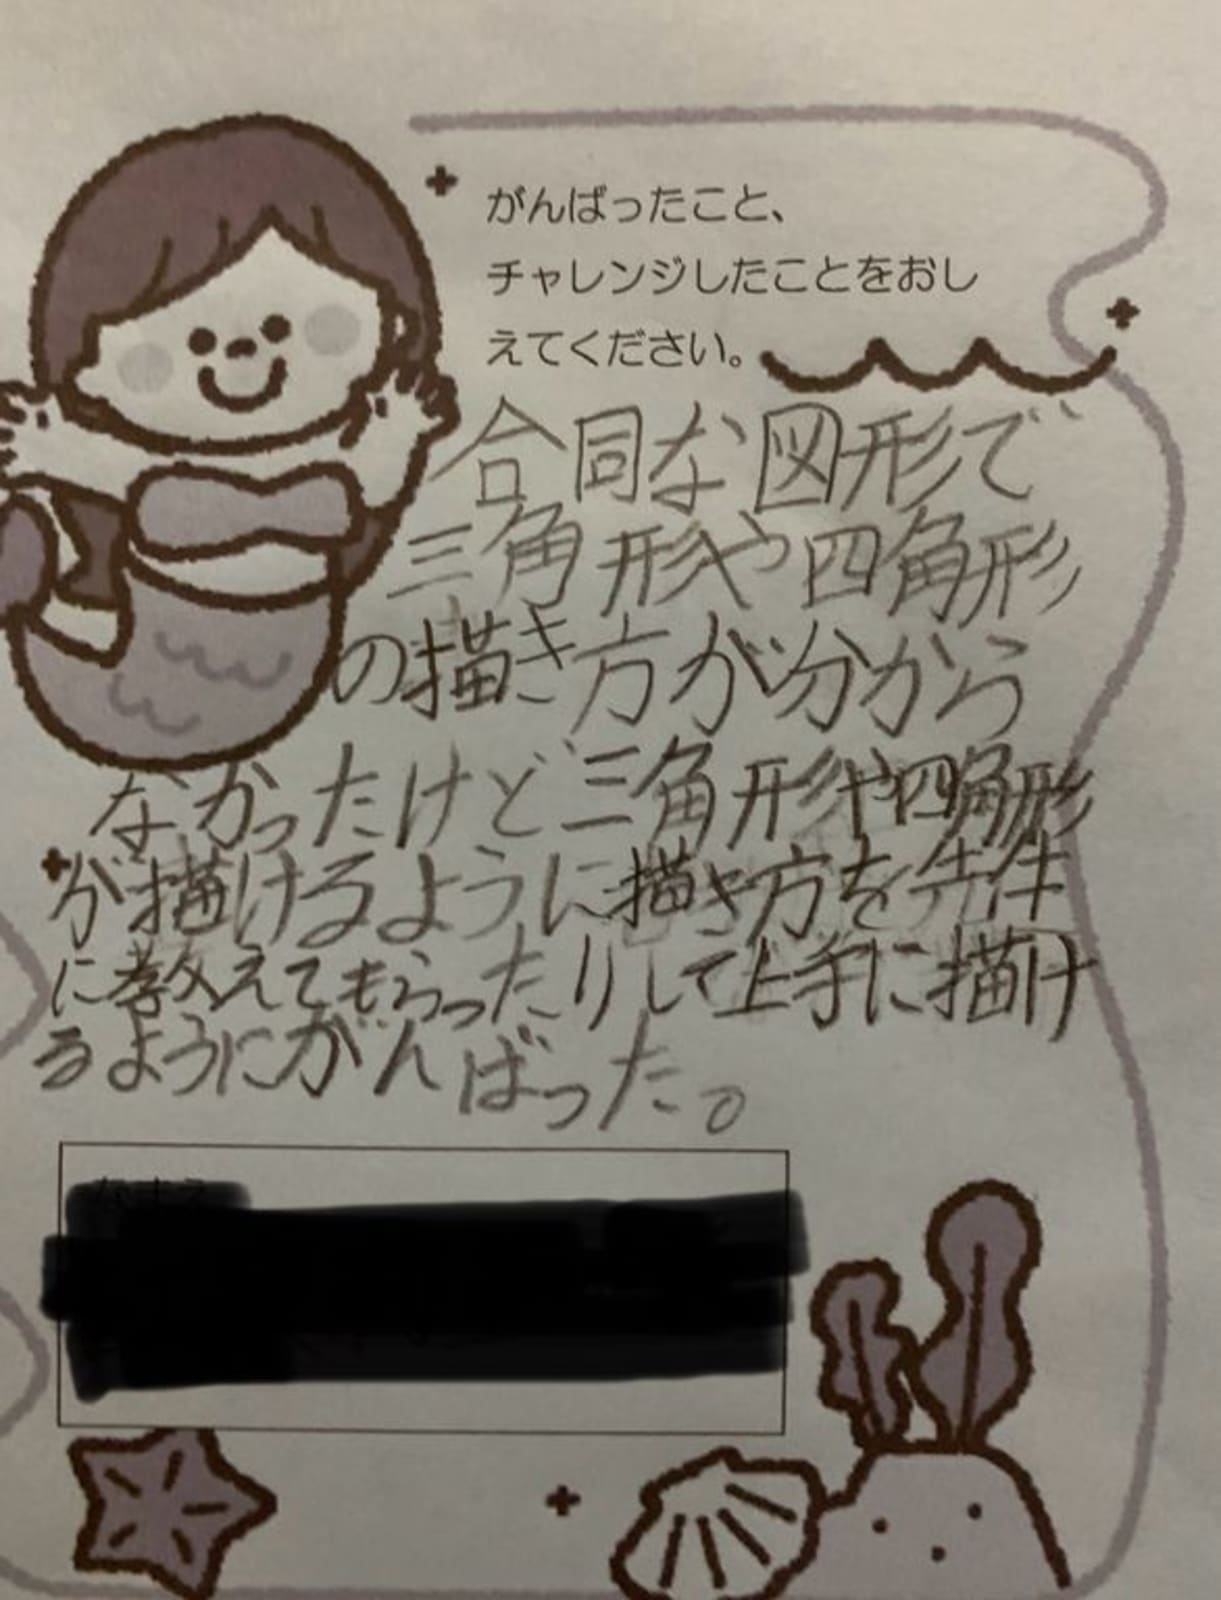 がんばったこと、
チャレンジしたことをおし
えてください。
合同な図形で
三角形や四角形
の描き方が分から
なかったけど三角形や四角形
が描けるように描き方を先生
に教えてもらったりして上手に描け
るようにがんばった。
なまえ